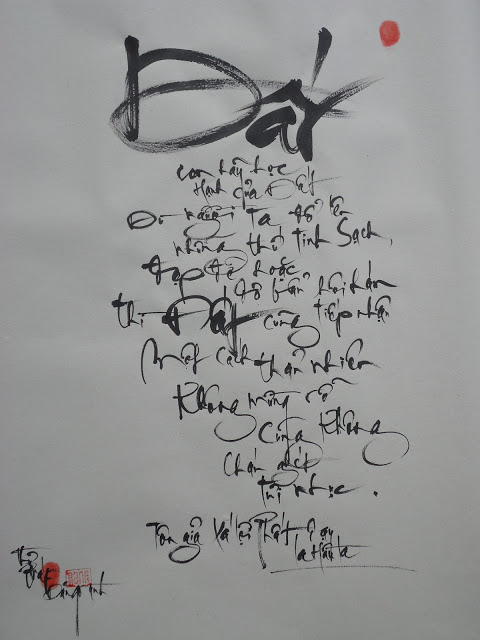 Đất
con hãy học
Hạnh của Đất
Dù người ta đổ lên
những thứ tinh sạch,
đẹp đẽ hoặc
dơ bẩn hôi hám
thì Đất cũng tiếp nhận
Một cách thản nhiên
Không mừng rỡ
Cũng không
chán ghét
tủi nhục.
Tôn giả Xá lợi Phất dạy
la Hầu la